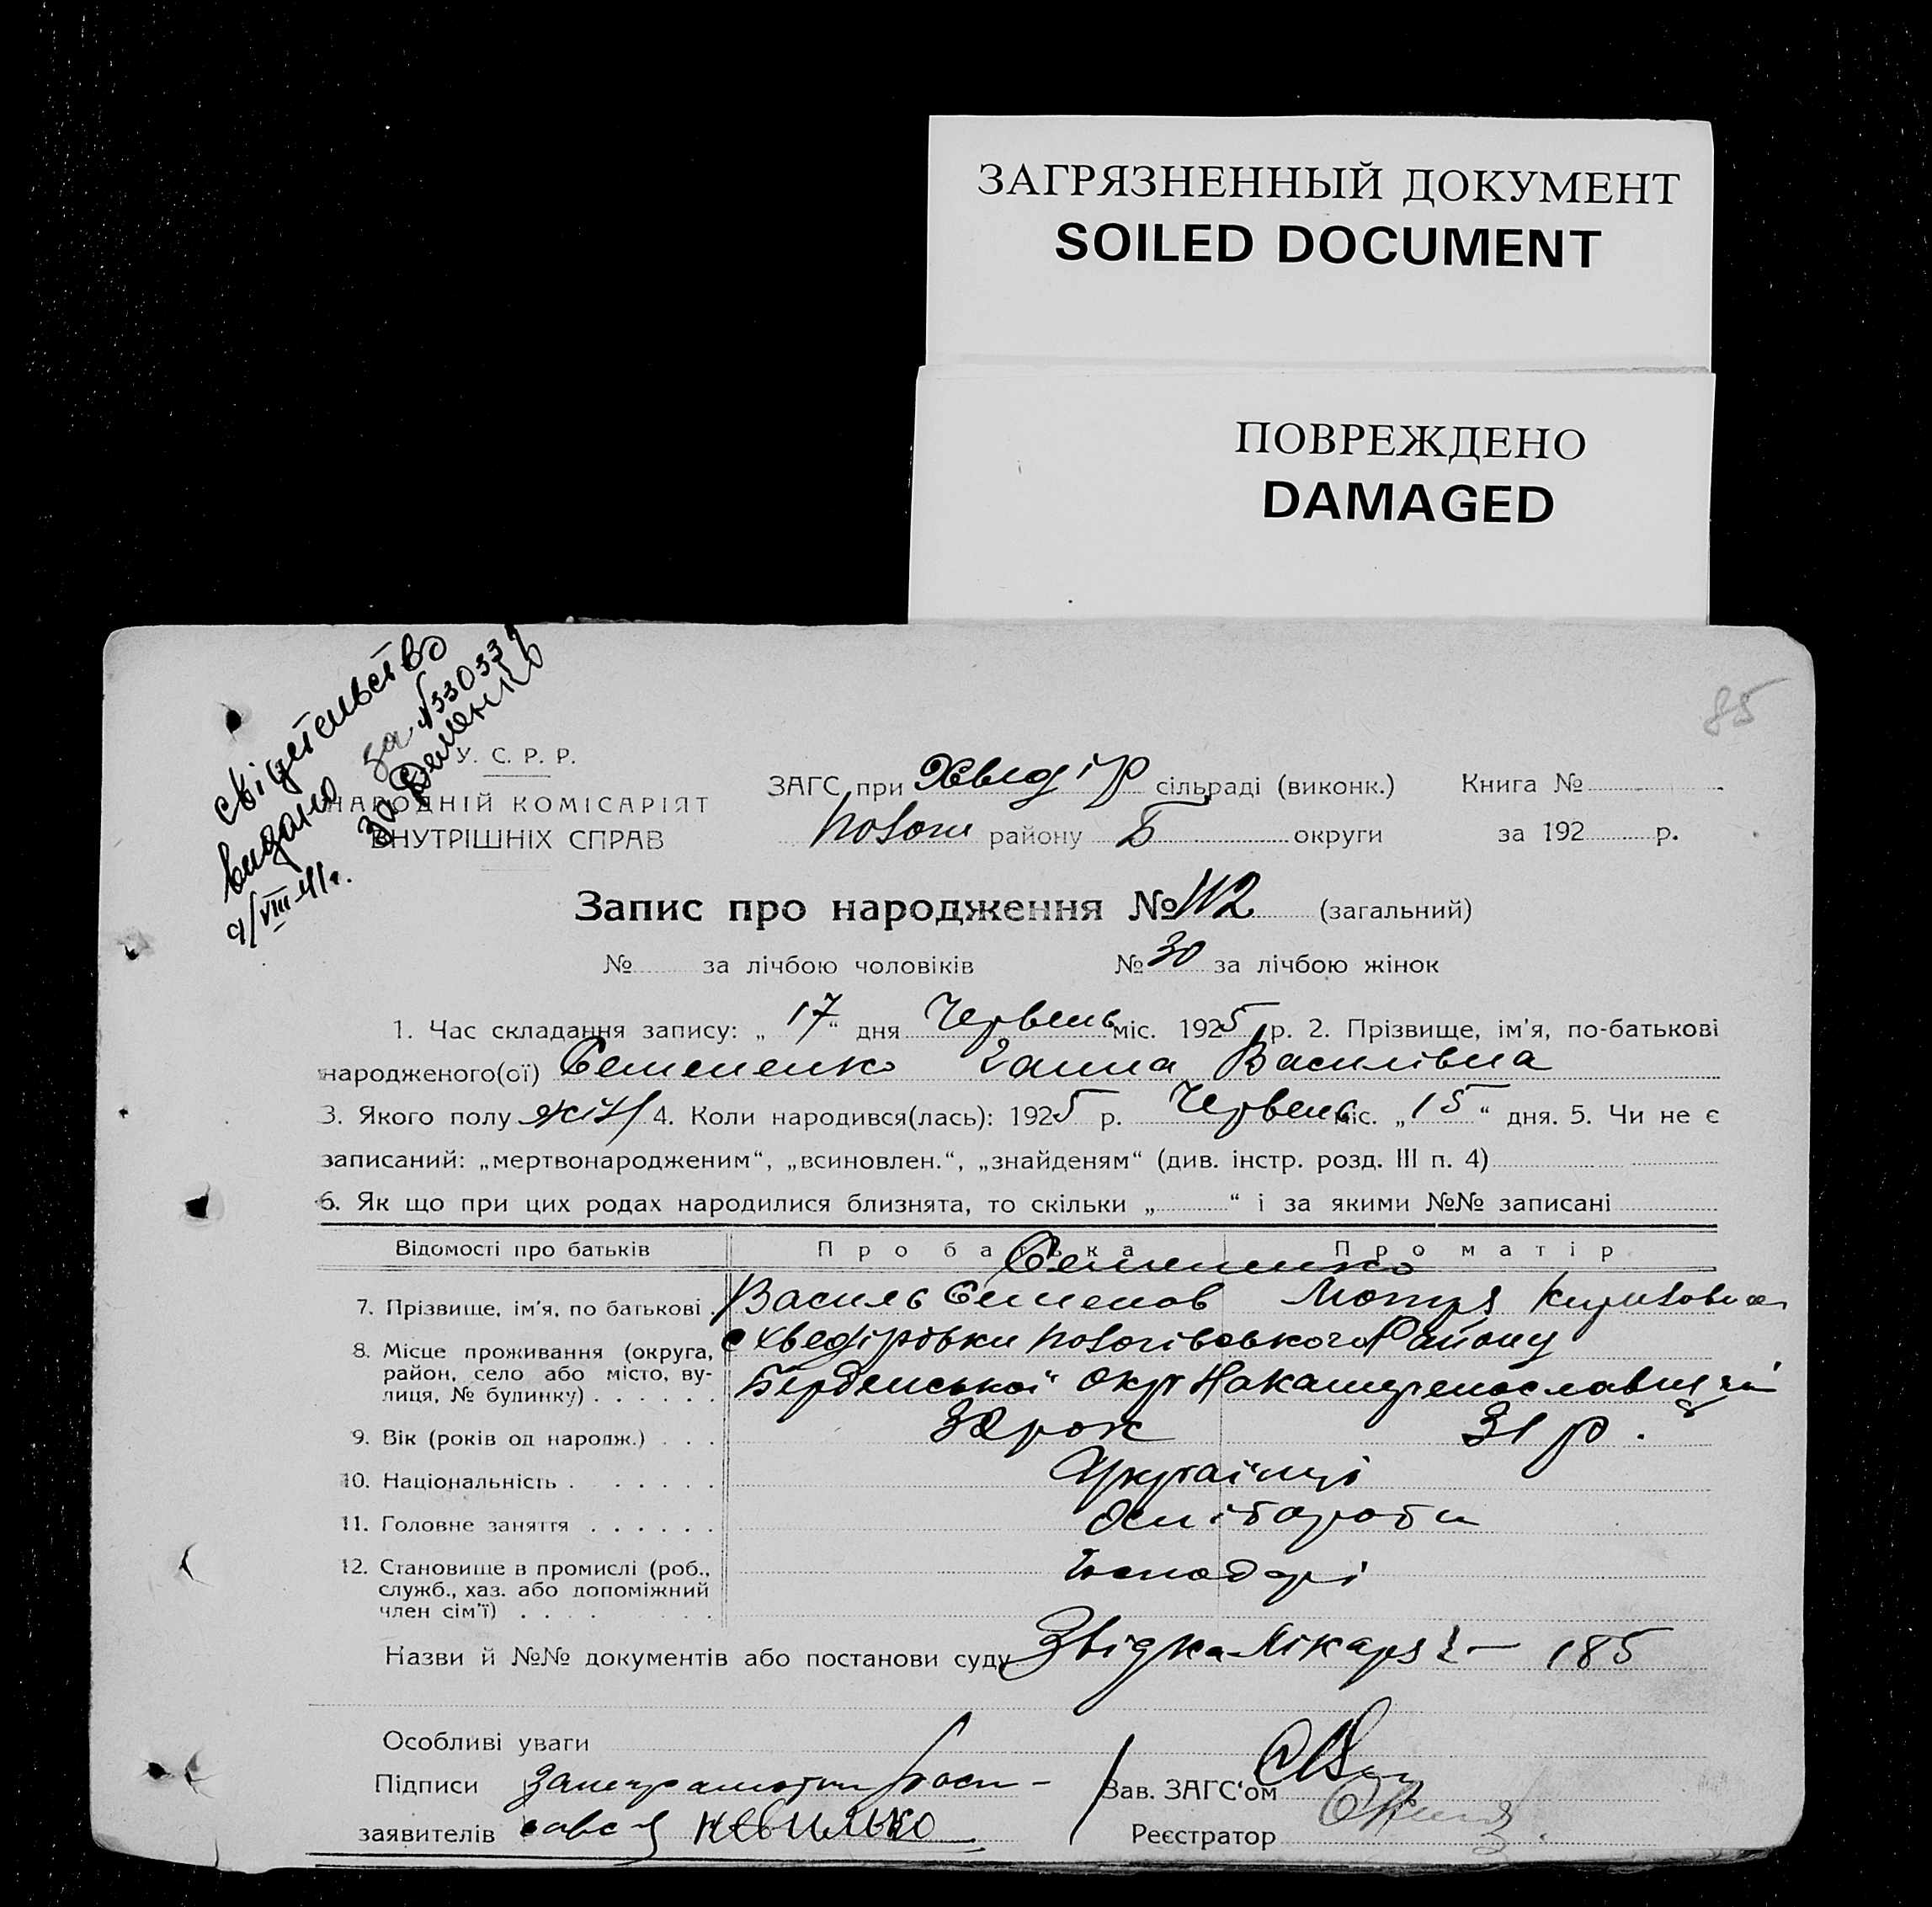 ЗАГРЯЗНЕННЫЙ ДОКУМЕНТ
SOILED DOCUMENT
ПОВРЕЖДЕНО
DAMAGED
85
свідетельство
видано за №33033
9/VIII-41г.
У. С. Р. Р.
НАРОДНІЙ КОМІСАРІЯТ
ВНУТРІШНІХ СПРАВ
ЗАГС при Хведір сільраді (виконк.) Книга №
Ногай району Б округи за 192 р.
Запис про народження № 112 (загальний)
№ за лічбою чоловіків № 30 за лічбою жінок
1. Час складання запису: „ 17 “ дня Червень міс. 1925 р. 2. Прізвище, ім'я, по-батькові
народженого(ої) Семененко Ганна Василівна
3. Якого полу жін 4. Коли народився(лась): 1925 р. Червень міс. „ 15 “ дня. 5. Чи не є
записаний: „мертвонародженим“, „всиновлен.“, „знайденям“ (див. інстр. розд. III п. 4)
6. Як що при цих родах народилися близнята, то скільки „ “ і за якими №№ записані
Відомості про батьків Про батька Про матір
Семененко
7. Прізвище, ім'я, по батькові . Василь Семенов Мотря
8. Місце проживання (округа, район, село або місто, вулиця, № будинку) . . . . . . с Хведірівки Району
Бердянської Окр На Катеренославщені
9. Вік (років од народж.) . . . рок 31 р.
10. Національність . . . . . . Українці
11. Головне заняття . . . . . .
12. Становище в промислі (роб., служб., хаз. або допоміжний член сім'ї) . . . . Господарі
Назви й №№ документів або постанови суду Звідка Лікаря 185
Особливі уваги
Підписи Зав. ЗАГС'ом
заявителів Реєстратор